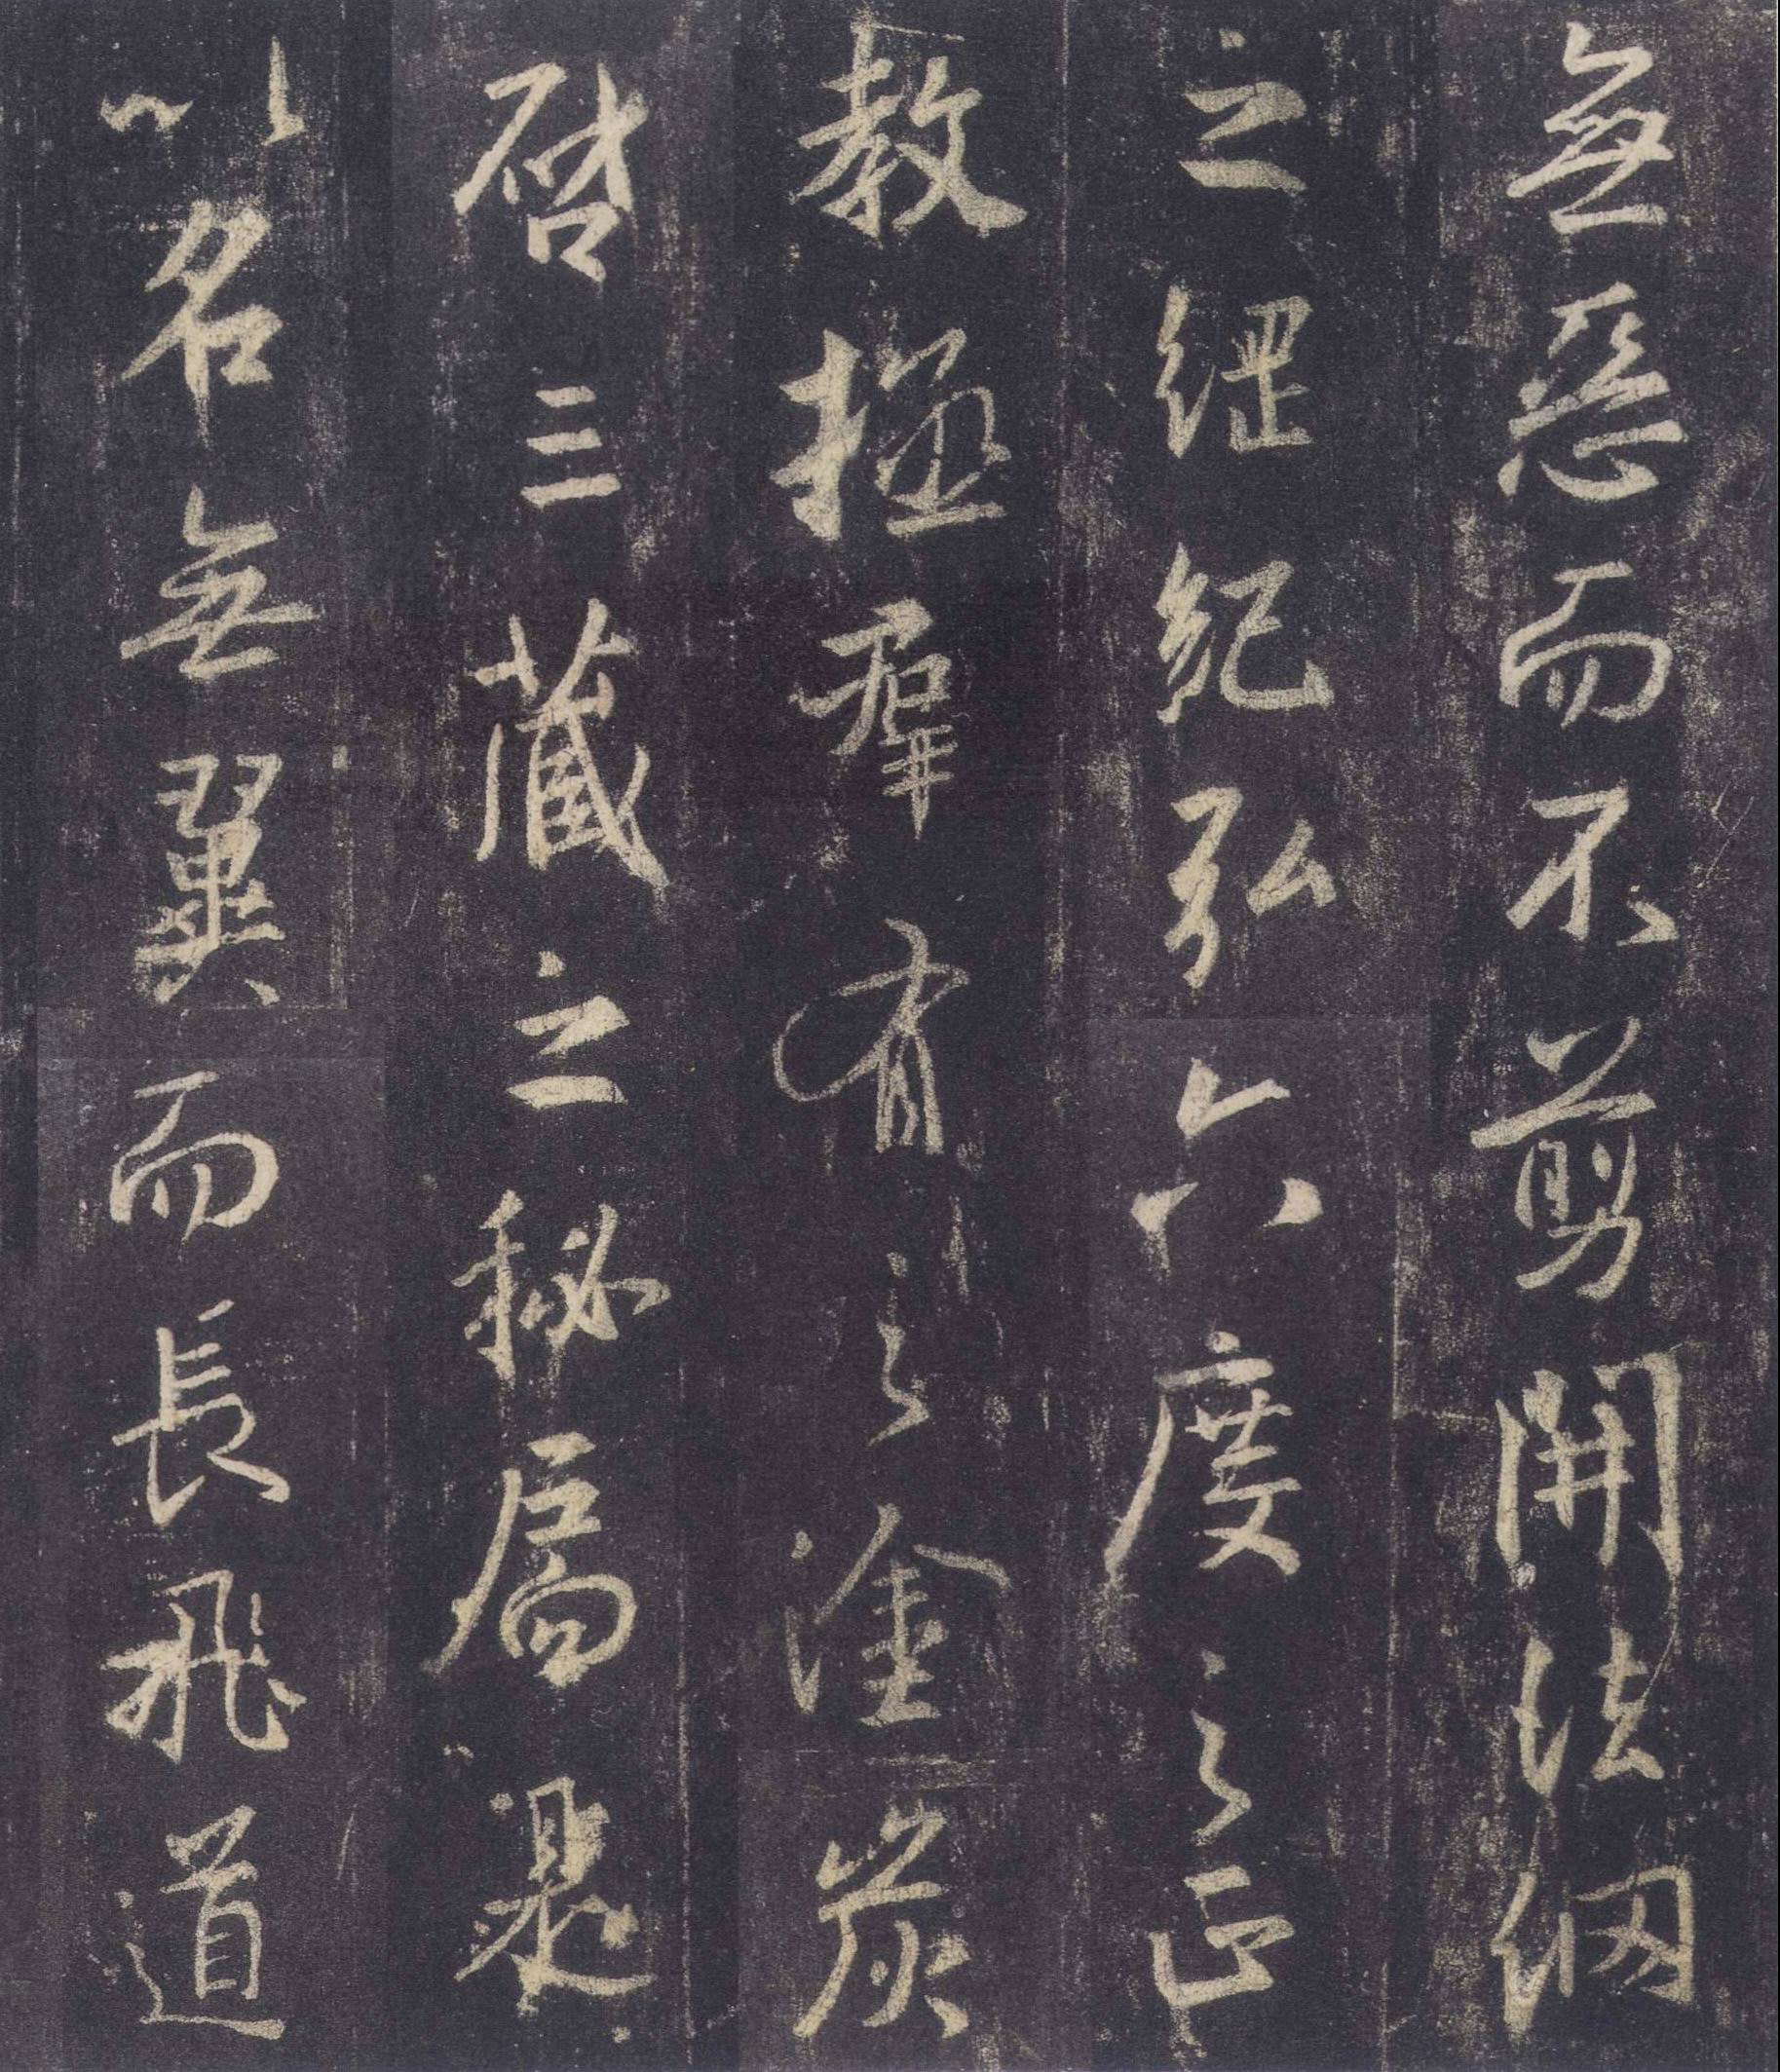 無惡而不剪開法網
之綱紀弘六度之正
教拯群有之塗炭
啓三藏之秘扃是
以名無翼而長飛道